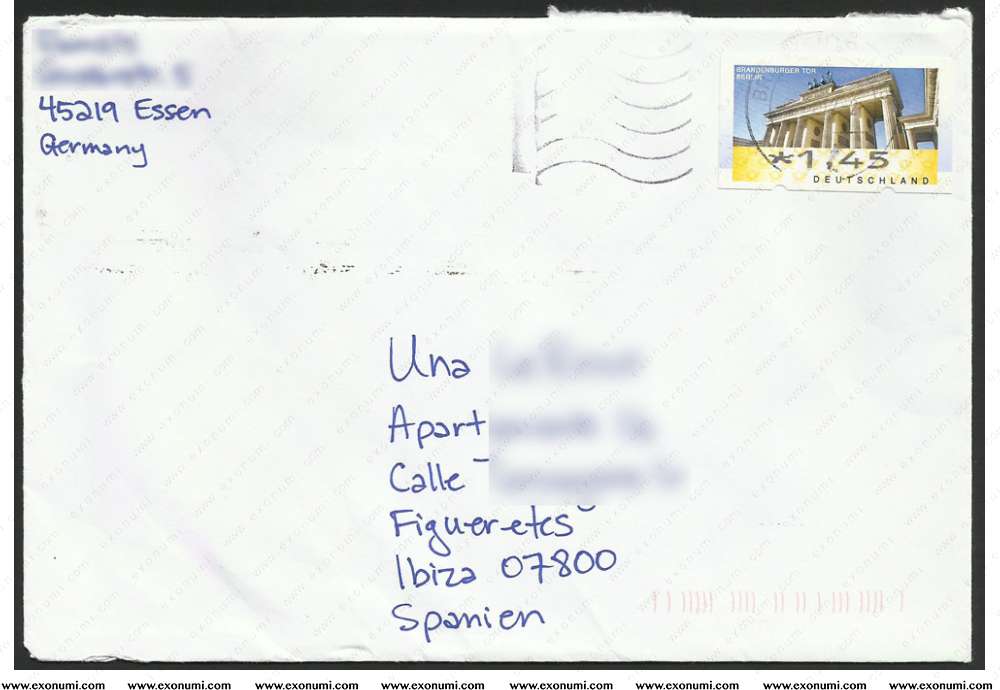 45219 Essen
Germany
BRANDENBURGER TOR
BERLIN
*1,45
DEUTSCHLAND
Una
Apart
Calle
Figueretes
Ibiza 07800
Spanien
www.exonumi.com www.exonumi.com www.exonumi.com www.exonumi.com www.exonumi.com www.exonumi.com www.exonumi.com www.exonumi.com